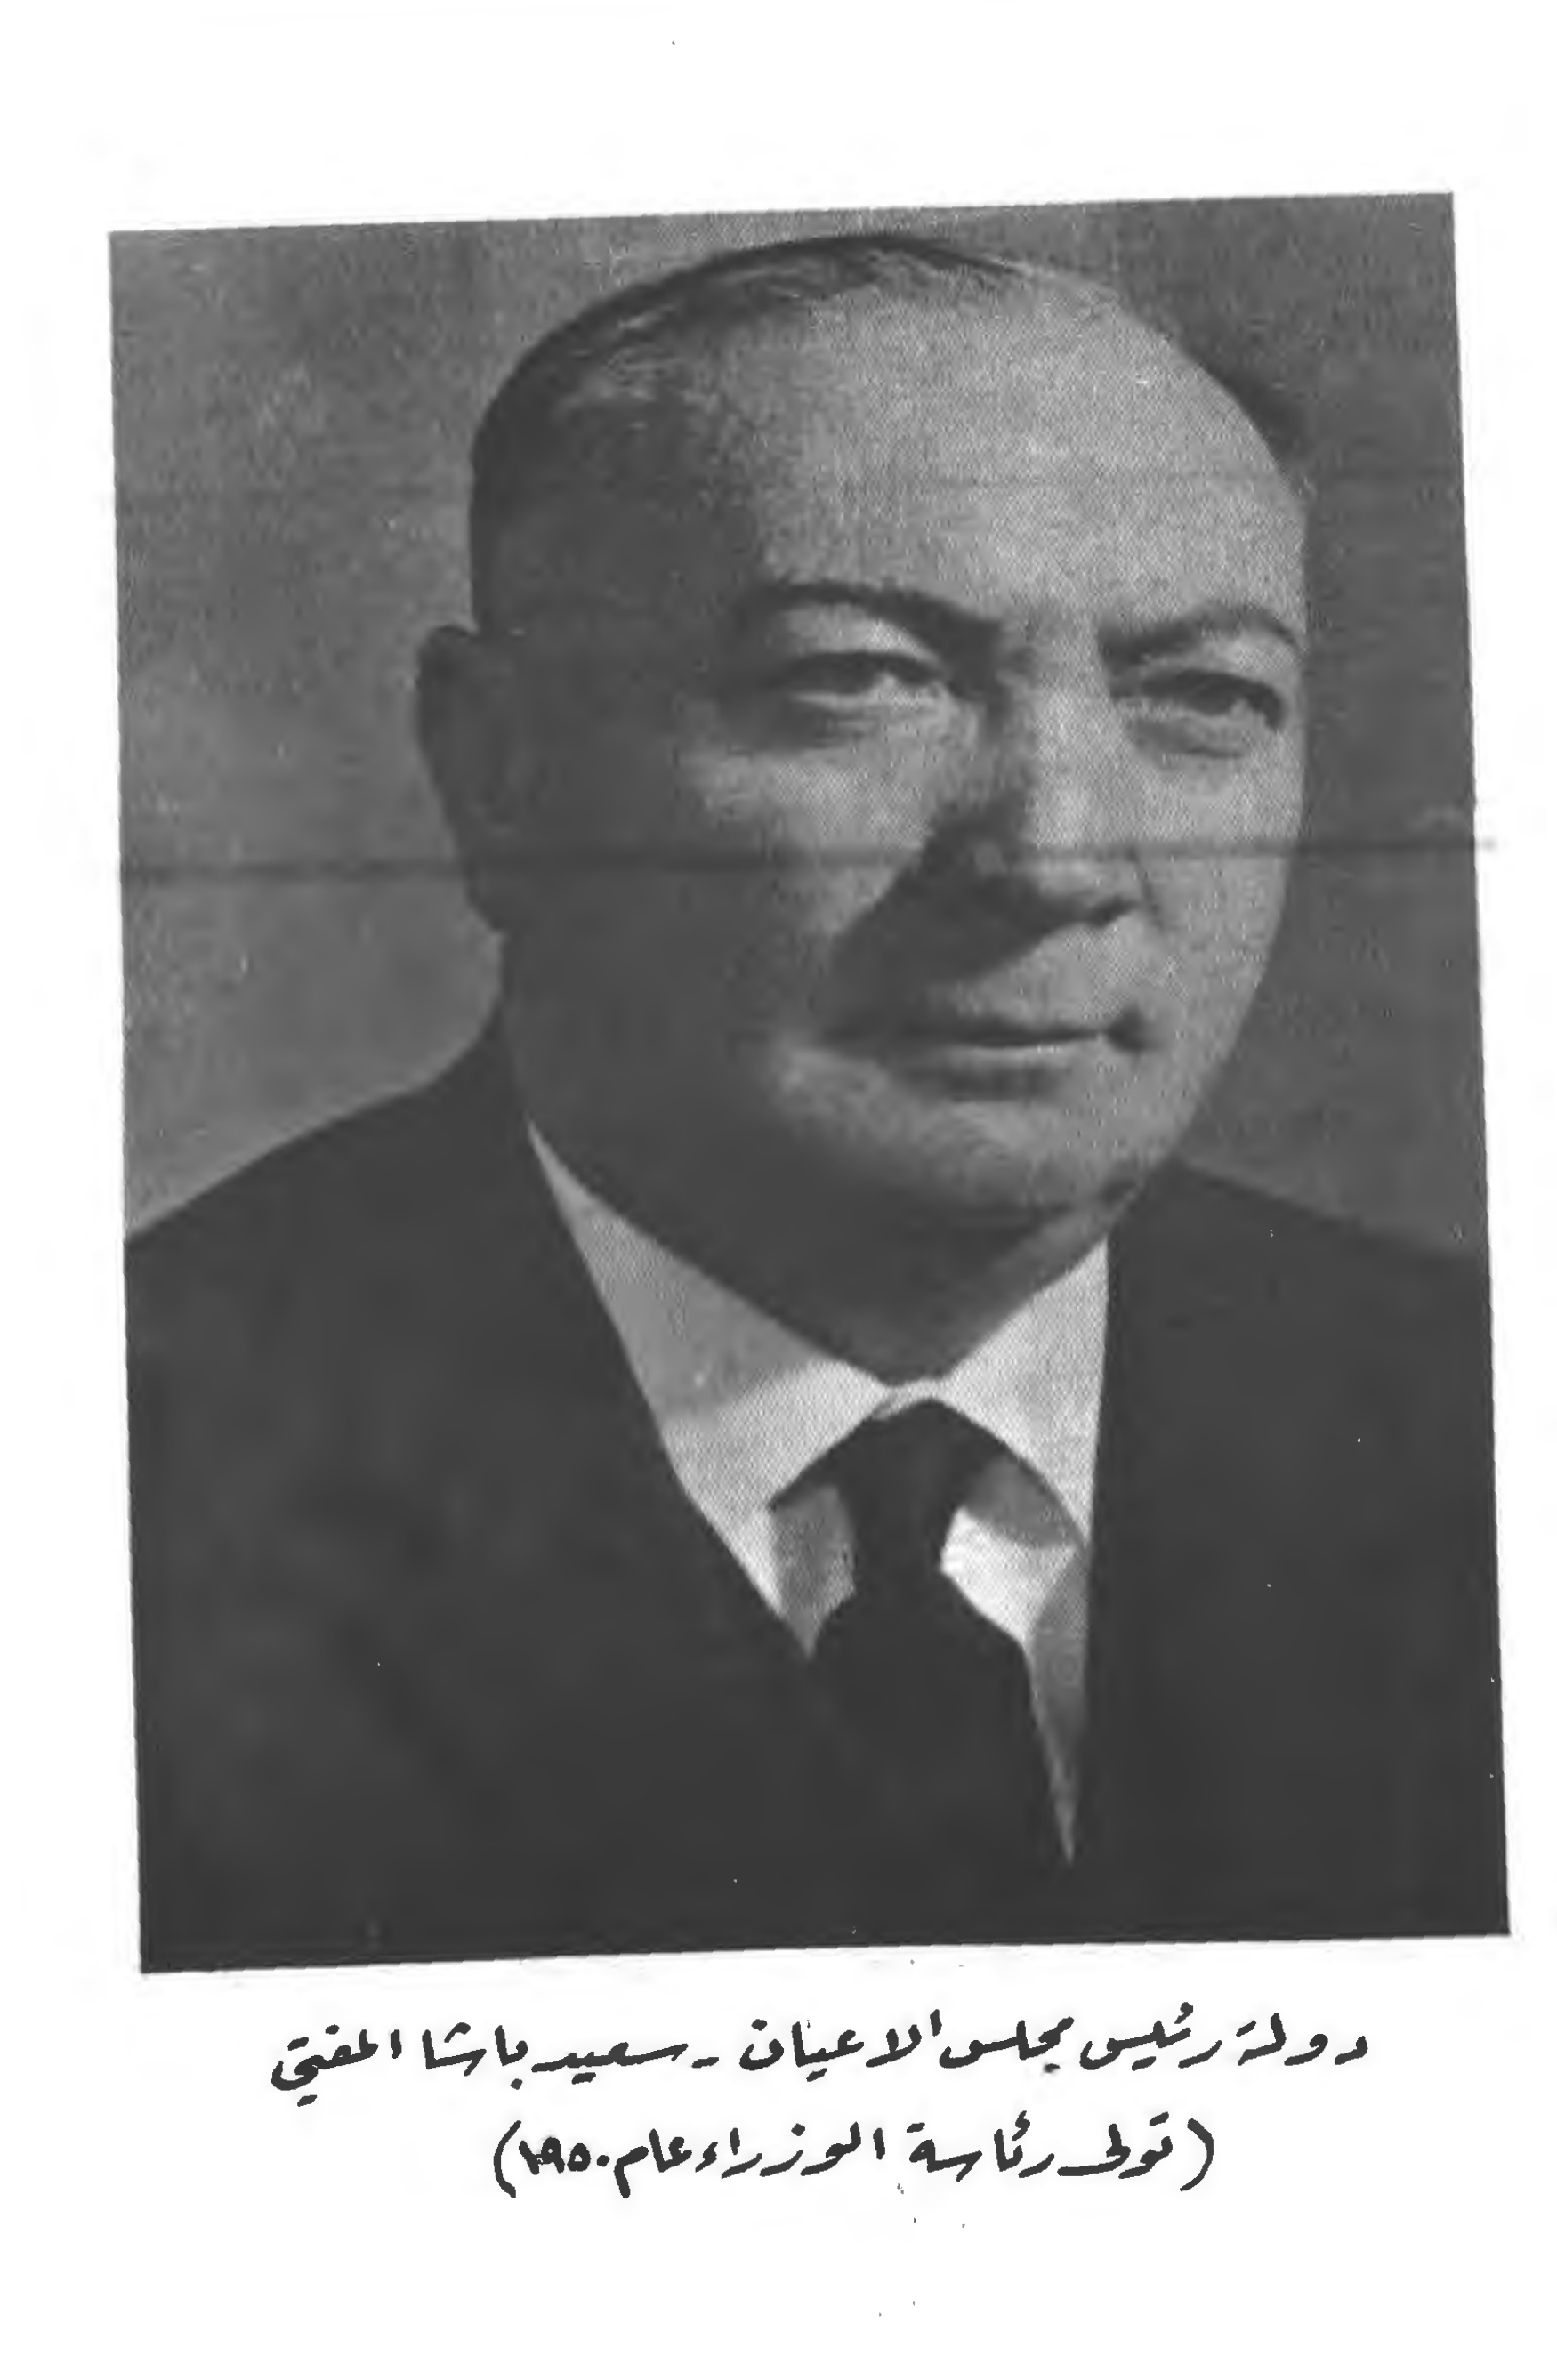 دولة رئيس مجلس الاعيان - سعيد باشا المفتي
(تولى رئاسة الوزراء عام ١٩٥٠)